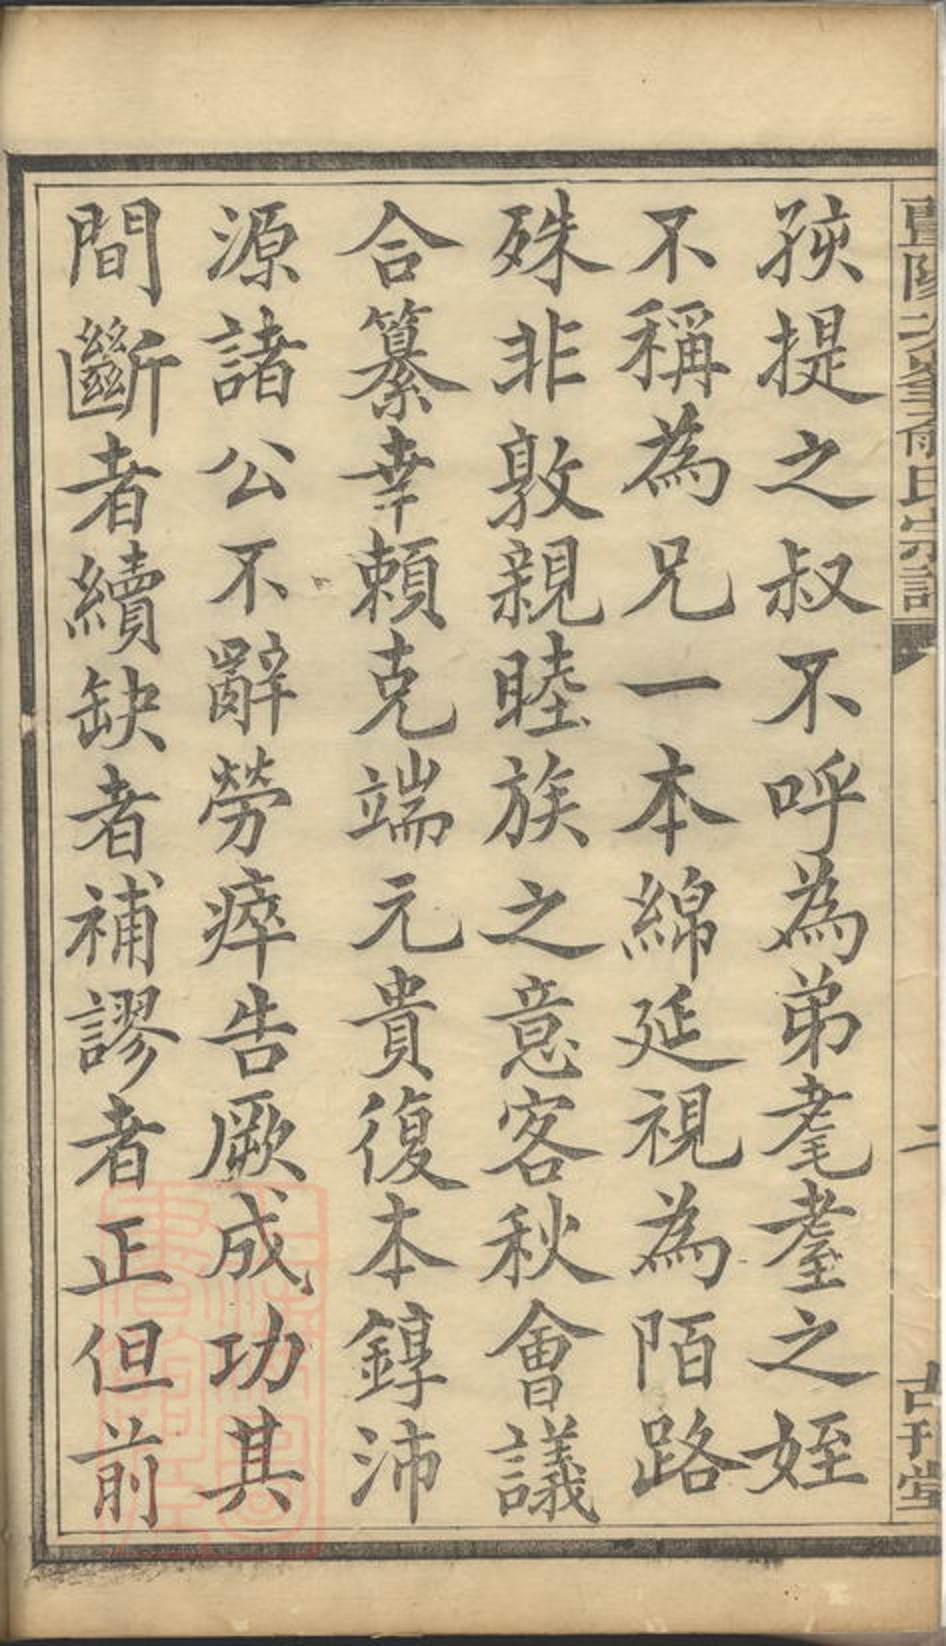 孩提之叔不呼為弟耄耋之姪
不稱為兄一本綿延視為陌路
殊非敦親睦族之意客秋會議
合纂幸賴克端元貴復本錞沛
源諸公不辭勞瘁告厥成功其
間斷者續缺者補謬者正但前